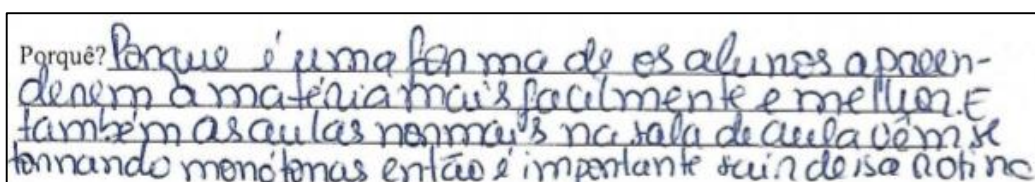 Porquê? Porque é uma forma de os alunos apreen-
derem a matéria mais facilmente e melhor. E
também as aulas normais na sala de aula vêm se
tornando monótonas então é importante sair de isa rotina